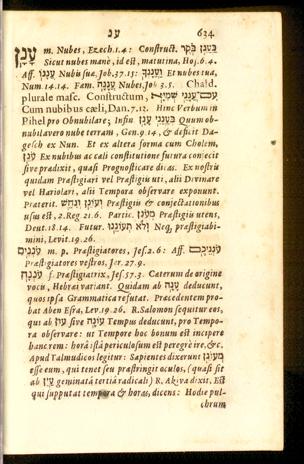 ענ 634
עָנָן m. Nubes, Ezech. 1.4: Construct. כַּעֲנַן בֹּקֶר
Sicut nubes manè, id est, matutina, Hos. 6.4.
Aff. עֲנָנוֹ Nubis sua, Job. 37.15: וַעֲנָנְךָ Et nubes tua,
Num. 14.14. Fam. עֲנָנָה Nubes, Job 3.5. Chald.
plurale masc. Constructum, עִם־עֲנָנֵי שְׁמַיָּא
Cum nubibus cæli, Dan. 7.12. Hinc Verbum in
Pihel pro Obnubilare; Infin בְּעַנְנִי עָנָן Quum ob-
nubilavero nube terram, Gen. 9 14, & deficit Da-
gesch ex Nun. Et ex altera forma cum Cholem,
עֹנֵן Ex nubibus ac cæli constitutione futura conjecit
sive prædixit, quasi Prognosticare dicas. Ex nostris
quidam Præstigiari vel Præstigiis uti, alii Divinare
vel Hariolari, alii Tempora observare exponunt.
Præterit. וְעוֹנֵן וְנִחֵשׁ Præstigiis & conjectationibus
usus est, 2. Reg 21.6. Partic. מְעוֹנֵן Præstigiis utens,
Deut. 18.14. Futur. וְלֹא תְעוֹנֵנוּ Neq, præstigiabi-
mini, Levit. 19.26.
עֹנְנִים m. p. Præstigiatores, Jes. 2.6: Aff. עֹנְנֵיכֶם
Præstigiatores vestros, Jer. 27.9.
עֹנְנָה f. Præstigiatrix, Jes. 57.3. Cæterum de origine
vocū, Hebræi variant. Quidam ab עָנָה deducunt,
quos ipsa Grammatica refutat. Præcedentem pro-
bat Aben Esra, Lev. 19.26. R. Salomon sequitur eos,
qui ab עוֹנָה sive עוֹן Tempus deducunt, pro Tempo-
ra observare: ut Tempore hoc bonum est incipere
hanc rem: horâ istâ periculosum est peregre ire, & c.
Apud Talmudicos legitur: Sapientes dixerunt מְעוֹנֵן
esse eum, qui tenet seu præstringit oculos, (quasi sit
ab עַיִן geminatâ tertiâ radicali) R. Akiva dixit, Est
qui supputat tempora & horas, dicens: Hodie pul-
chrum